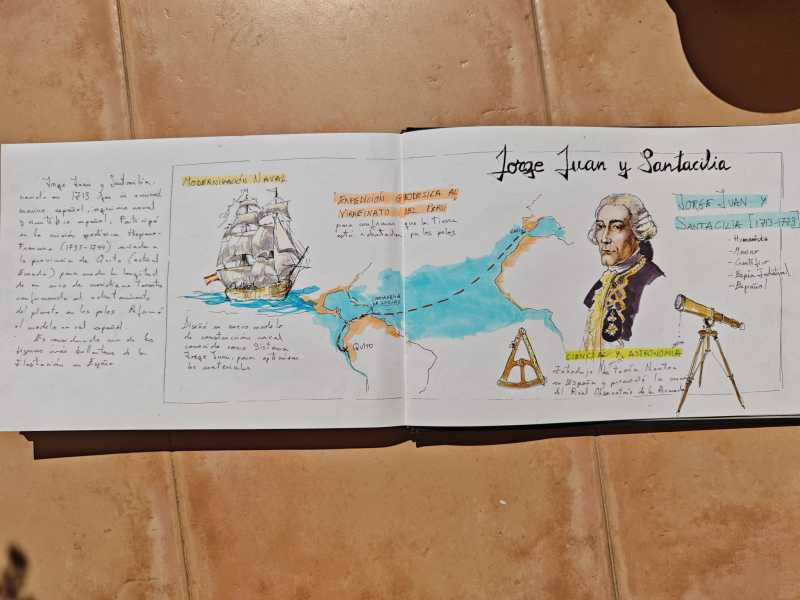 Jorge Juan y Santacilia,
nacido en 1713 fue un
marino español, ingeniero naval
y científico español. Participó
en la misión geodésica Hispano-
Francesa (1735-1744) enviada a
la provincia de Quito (actual
Ecuador) para medir la longitud
de un arco de meridiano terrestre
del planeta en los polos. Reformó
el modelo naval español.
Es considerado uno de los
más brillantes de la
Ilustración en España
MODERNIZACIÓN NAVAL
Diseñó un nuevo modelo
de construcción naval
conocido como Sistema
Jorge Juan, para optimizar
los materiales
EXPEDICIÓN GEODESICA AL
VIRREINATO DEL PERÚ
para confirmar que la Tierra
está achatada por los polos
CARTAGENA
QUITO
Jorge Juan y Santacilia
JORGE JUAN Y
SANTACILIA [1713-1773]
- Humanista
- Marino
- Científico
- Espía Industrial
- Español
CIENCIAS Y ASTRONOMIA
Introdujo la Teoría
en España y promovió la
del Real Observatorio de la Armada